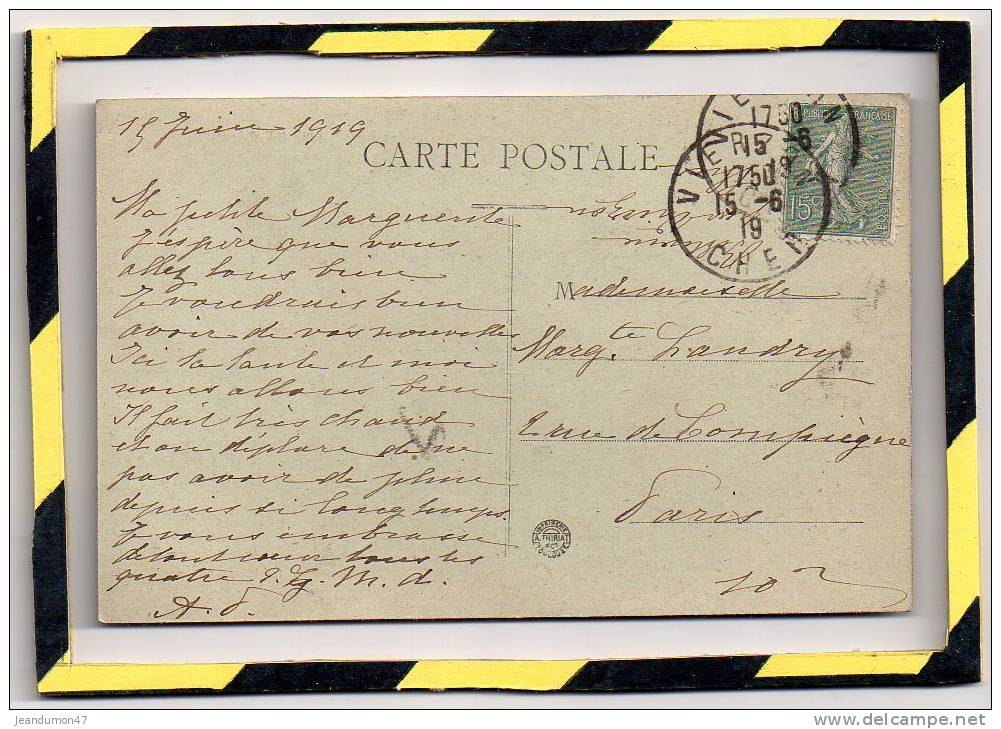 15 Juin 1919
CARTE POSTALE
Ma petite Marguerite
J'espère que vous
allez tous bien
Je voudrais bien
avoir de vos nouvelles
Ici la tante et moi
nous allons bien
Il fait très chaud
et on déplore de ne
pas avoir de pluie
depuis si longtemps.
Je vous embrasse
de tout cœur tous les
quatre
M. d.
A. J.
VIERZON
1750
15 -6
19
VIERZON
1750
15 -6
19
CHER
REPUBLIQUE FRANÇAISE
15c
POSTES
Mademoiselle
Marg.te Landry
2 rue de Compiègne
Paris
10e
IMPRIMERIE
A. THIRIAT
& Cie
TOULOUSE
jeandumon47
www.delcampe.net